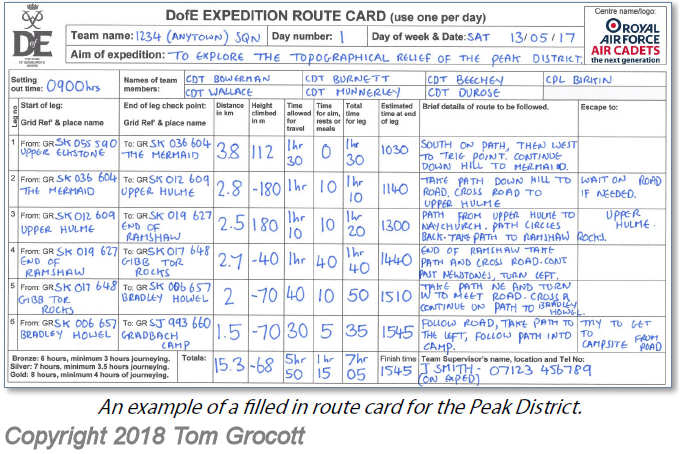 DofE EXPEDITION ROUTE CARD (use one per day)
Centre name/logo:
ROYAL
AIR FORCE
AIR CADETS
the next generation
DofE
Team name: 1234 (ANYTOWN) SQN Day number: 1 Day of week & Date: SAT 13/05/17
Aim of expedition: TO EXPLORE THE TOPOGRAPHICAL RELIEF OF THE PEAK DISTRICT.
Setting out time: 0900hrs
Names of team members:
CDT BOWERMAN CDT BURNETT CDT BEECHEY CPL BIRKIN
CDT WALLACE CDT MUNNERLEY CDT DUROSE
Leg no
Start of leg: Grid Ref & place name
End of leg check point: Grid Ref & place name
Distance in km
Height climbed in m
Time allowed for travel
Time for aim, rests or meals
Total time for leg
Estimated time at end of leg
Brief details of route to be followed.
Escape to:
1 From: GR SK 055 590 To: GR SK 036 604 3.8 112 1hr 30 0 1hr 30 1030
UPPER ELKSTONE THE MERMAID
SOUTH ON PATH, THEN WEST
TO TRIG POINT. CONTINUE
DOWN HILL TO MERMAID.
2 From: GR SK 036 604 To: GR SK 012 609 2.8 -180 1hr 10 1hr 10 1140
THE MERMAID UPPER HULME
TAKE PATH DOWN HILL TO
ROAD, CROSS ROAD TO
UPPER HULME
WAIT ON ROAD
IF NEEDED.
3 From: GR SK 012 609 To: GR SK 019 627 2.5 180 1hr 10 10 1hr 20 1300
UPPER HULME END OF RAMSHAW
PATH FROM UPPER HULME TO
NAYCHURCH. PATH CIRCLES
BACK. TAKE PATH TO RAMSHAW ROCKS.
UPPER
HULME.
4 From: GR SK 019 627 To: GR SK 017 648 2.7 -40 1hr 40 1hr 40 1440
END OF RAMSHAW GIBB TOR ROCKS
END OF RAMSHAW TAKE
PATH AND CROSS ROAD. CONT
PAST NEWSTONES, TURN LEFT.
5 From: GR SK 017 648 To: GR SK 006 657 2 -70 40 10 50 1510
GIBB TOR ROCKS BRADLEY HOWEL
TAKE PATH NE AND TURN
IN TO MEET ROAD. CROSS &
CONTINUE ON PATH TO BRADLEY
HOWEL.
6 From: GR SK 006 657 To: GR SJ 993 660 1.5 -70 30 5 35 1545
BRADLEY HOWEL GRADBACH CAMP
FOLLOW ROAD, TAKE PATH TO
THE LEFT, FOLLOW PATH INTO
CAMP.
TRY TO GET
TO
CAMPSITE FROM
ROAD
Bronze: 6 hours, minimum 3 hours journeying.
Silver: 7 hours, minimum 3.5 hours journeying.
Gold: 8 hours, minimum 4 hours of journeying.
Totals: 15.3 -68 5hr 50 1hr 15 7hr 05
Finish time 1545
Team Supervisor's name, location and Tel No:
J SMITH - 07123 456789
(ON EXPED)
An example of a filled in route card for the Peak District.
Copyright 2018 Tom Grocott